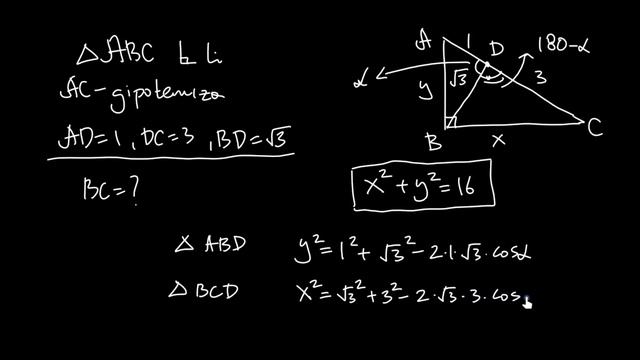 △ABC ⊾ li
AC-gipotenuza
AD=1, DC=3, BD=√3
BC=?
A 1 D 180-α
α y √3 3
B x C
x²+y²=16
△ ABD y²=1²+√3²-2·1·√3·cosα
△ BCD x²=√3²+3²-2·√3·3·cos